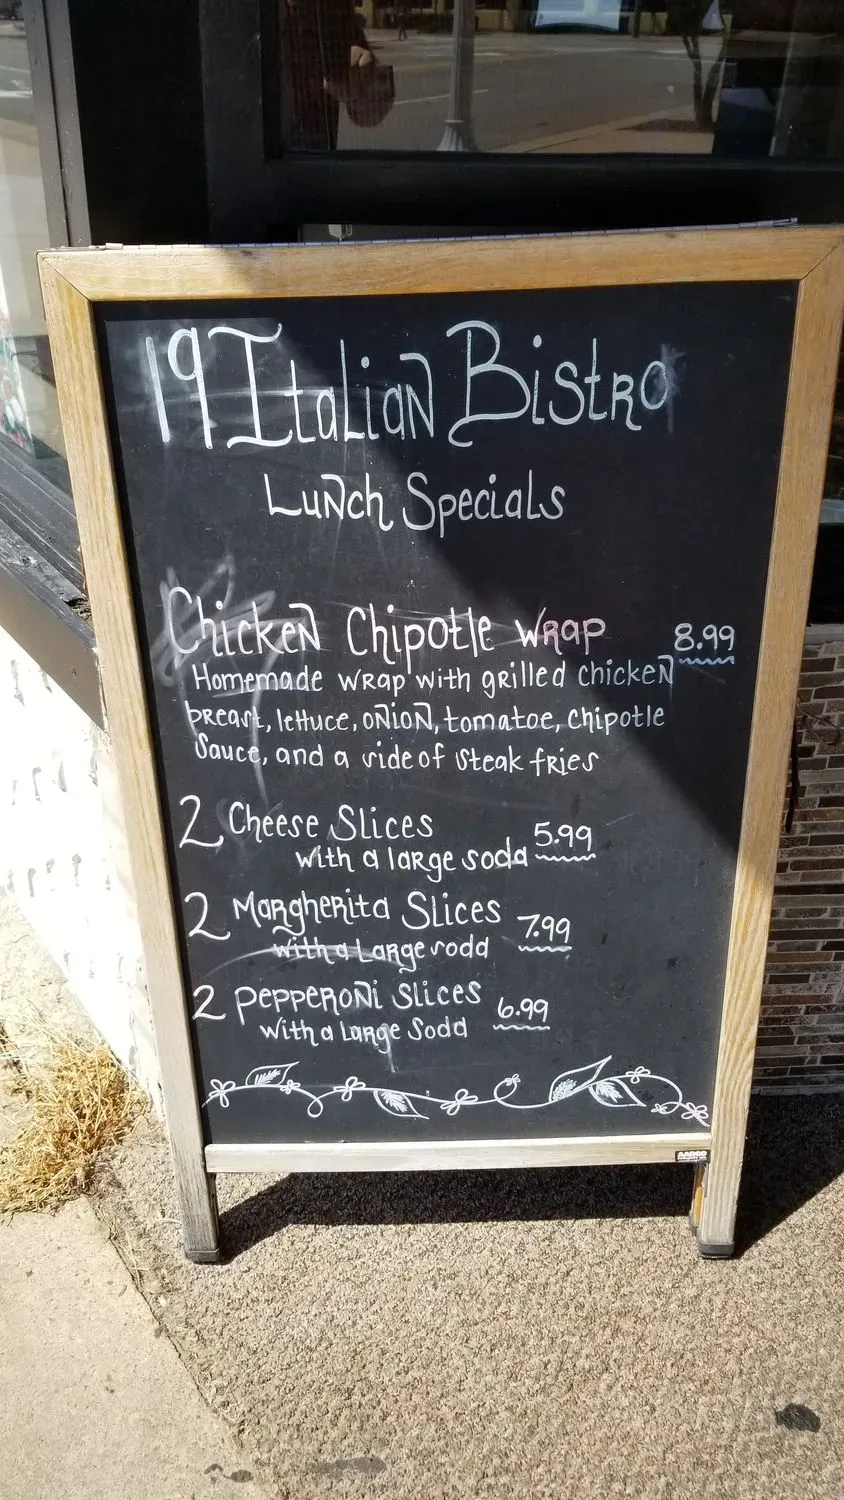 19 Italian Bistro
Lunch Specials
Chicken Chipotle Wrap 8.99
Homemade wrap with grilled chicken
breast, lettuce, onion, tomatoe, chipotle
Sauce, and a side of Steak fries
2 Cheese Slices
with a large soda 5.99
2 Margherita Slices 7.99
with a Large soda
2 Pepperoni Slices 6.99
with a Large Soda
AARCO